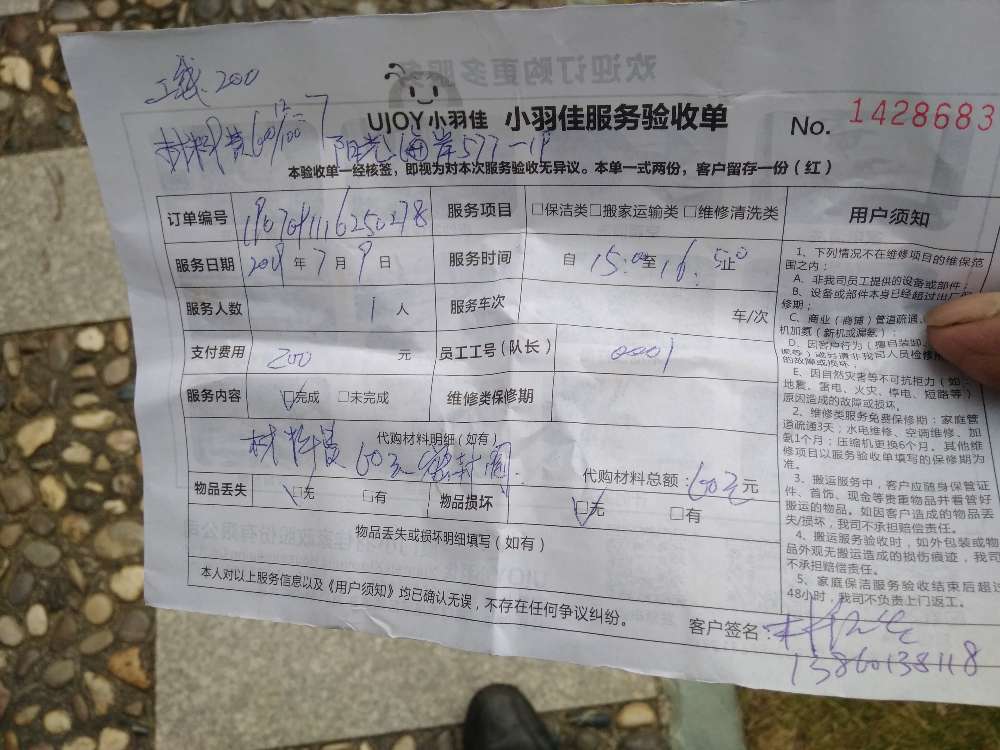 工钱.200
材料费60
阳光海岸577-19
UJOY小羽佳 小羽佳服务验收单
No. 1428683
本验收单一经核签，即视为对本次服务验收无异议。本单一式两份，客户留存一份（红）
订单编号
服务项目 □保洁类□搬家运输类□维修清洗类
服务日期 2019年7月9日
服务时间 自15:00至16:50止
服务人数 1人
服务车次 车/次
支付费用 200元
员工工号（队长） 0001
服务内容 □完成 □未完成
维修类保修期
代购材料明细（如有）
材料费60元 密封圈
代购材料总额：60元元
物品丢失 □无 □有
物品损坏 □无 □有
物品丢失或损坏明细填写（如有）
本人对以上服务信息以及《用户须知》均已确认无误，不存在任何争议纠纷。
客户签名：
13860138118
用户须知
1、下列情况不在维修项目的维保范
围之内：
A、非我司员工提供的设备或部件；
B、设备或部件本身已经超过出厂
修期；
C、商业（商铺）管道疏通、
机加氨（新机或漏氨）；
D、因客户行为（擅自装卸、
的故障或损坏；
E、因自然灾害等不可抗拒力（如：
地震、雷电、火灾、停电、短路等）
原因造成的故障或损坏。
2、维修类服务免费保修期：家庭管
道疏通3天；水电维修、空调维修、加
氨1个月；压缩机更换6个月。其他维
修项目以服务验收单填写的保修期为
准。
3、搬运服务中，客户应随身保管证
件、首饰、现金等贵重物品并看管好
搬运的物品。如因客户造成的物品丢
失/损坏，我司不承担赔偿责任。
4、搬运服务验收时，如外包装或物
品外观无搬运造成的损伤痕迹，我司
不承担赔偿责任。
5、家庭保洁服务验收结束后超过
48小时，我司不负责上门返工。